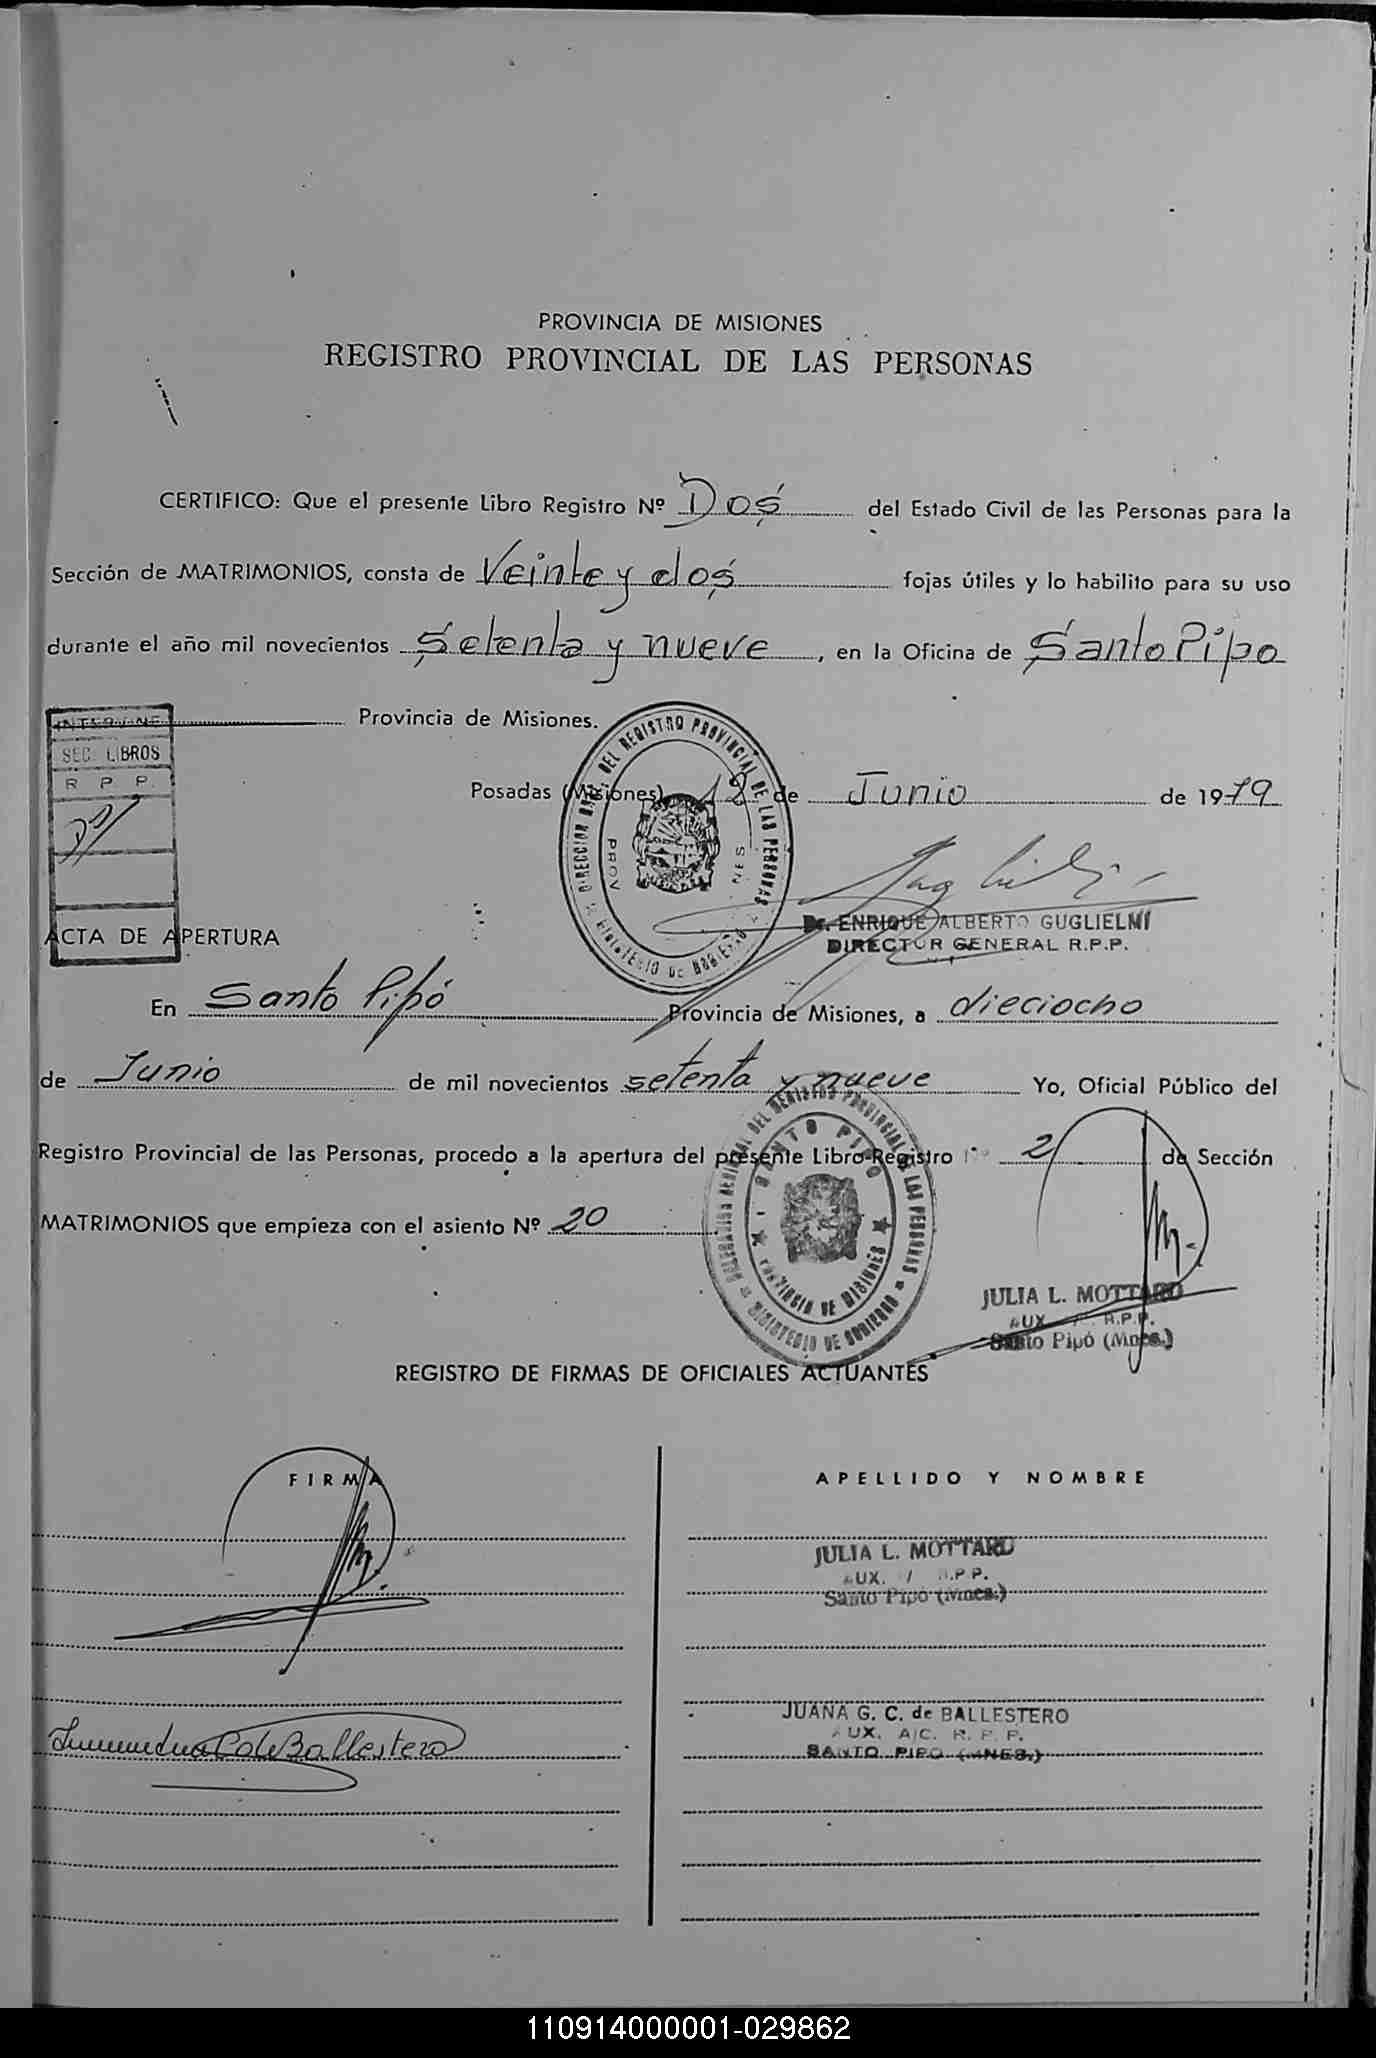 PROVINCIA DE MISIONES
REGISTRO PROVINCIAL DE LAS PERSONAS
CERTIFICO: Que el presente Libro Registro Nº Dos del Estado Civil de las Personas para la
Sección de MATRIMONIOS, consta de Veinte y dos fojas útiles y lo habilito para su uso
durante el año mil novecientos Setenta y nueve, en la Oficina de Santo Pipo
Provincia de Misiones.
INTERVINE
SEC. LIBROS
R P P.
DIRECCION GRAL. DEL REGISTRO PROVINCIAL DE LAS PERSONAS
MINISTERIO DE GOBIERNO
Posadas (Misiones) 12 de Junio de 1979
Dr. ENRIQUE ALBERTO GUGLIELMI
DIRECTOR GENERAL R.P.P.
ACTA DE APERTURA
En Santo Pipó Provincia de Misiones, a dieciocho
de Junio de mil novecientos setenta y nueve Yo, Oficial Público del
Registro Provincial de las Personas, procedo a la apertura del presente Libro-Registro Nº 2 de Sección
MATRIMONIOS que empieza con el asiento Nº 20
DEL REGISTRO PROVINCIAL DE LAS PERSONAS
MINISTERIO DE GOBIERNO
SANTO PIPO
PROVINCIA DE MISIONES
JULIA L. MOTTARD
AUX. R.P.P.
Santo Pipó (Mnes.)
REGISTRO DE FIRMAS DE OFICIALES ACTUANTES
FIRMA
APELLIDO Y NOMBRE
JULIA L. MOTTARD
AUX. R.P.P.
Santo Pipó (Mnes.)
JUANA G. C. de BALLESTERO
AUX. A/C. R. P. P.
SANTO PIPO (MNES.)
de Ballestero
110914000001-029862